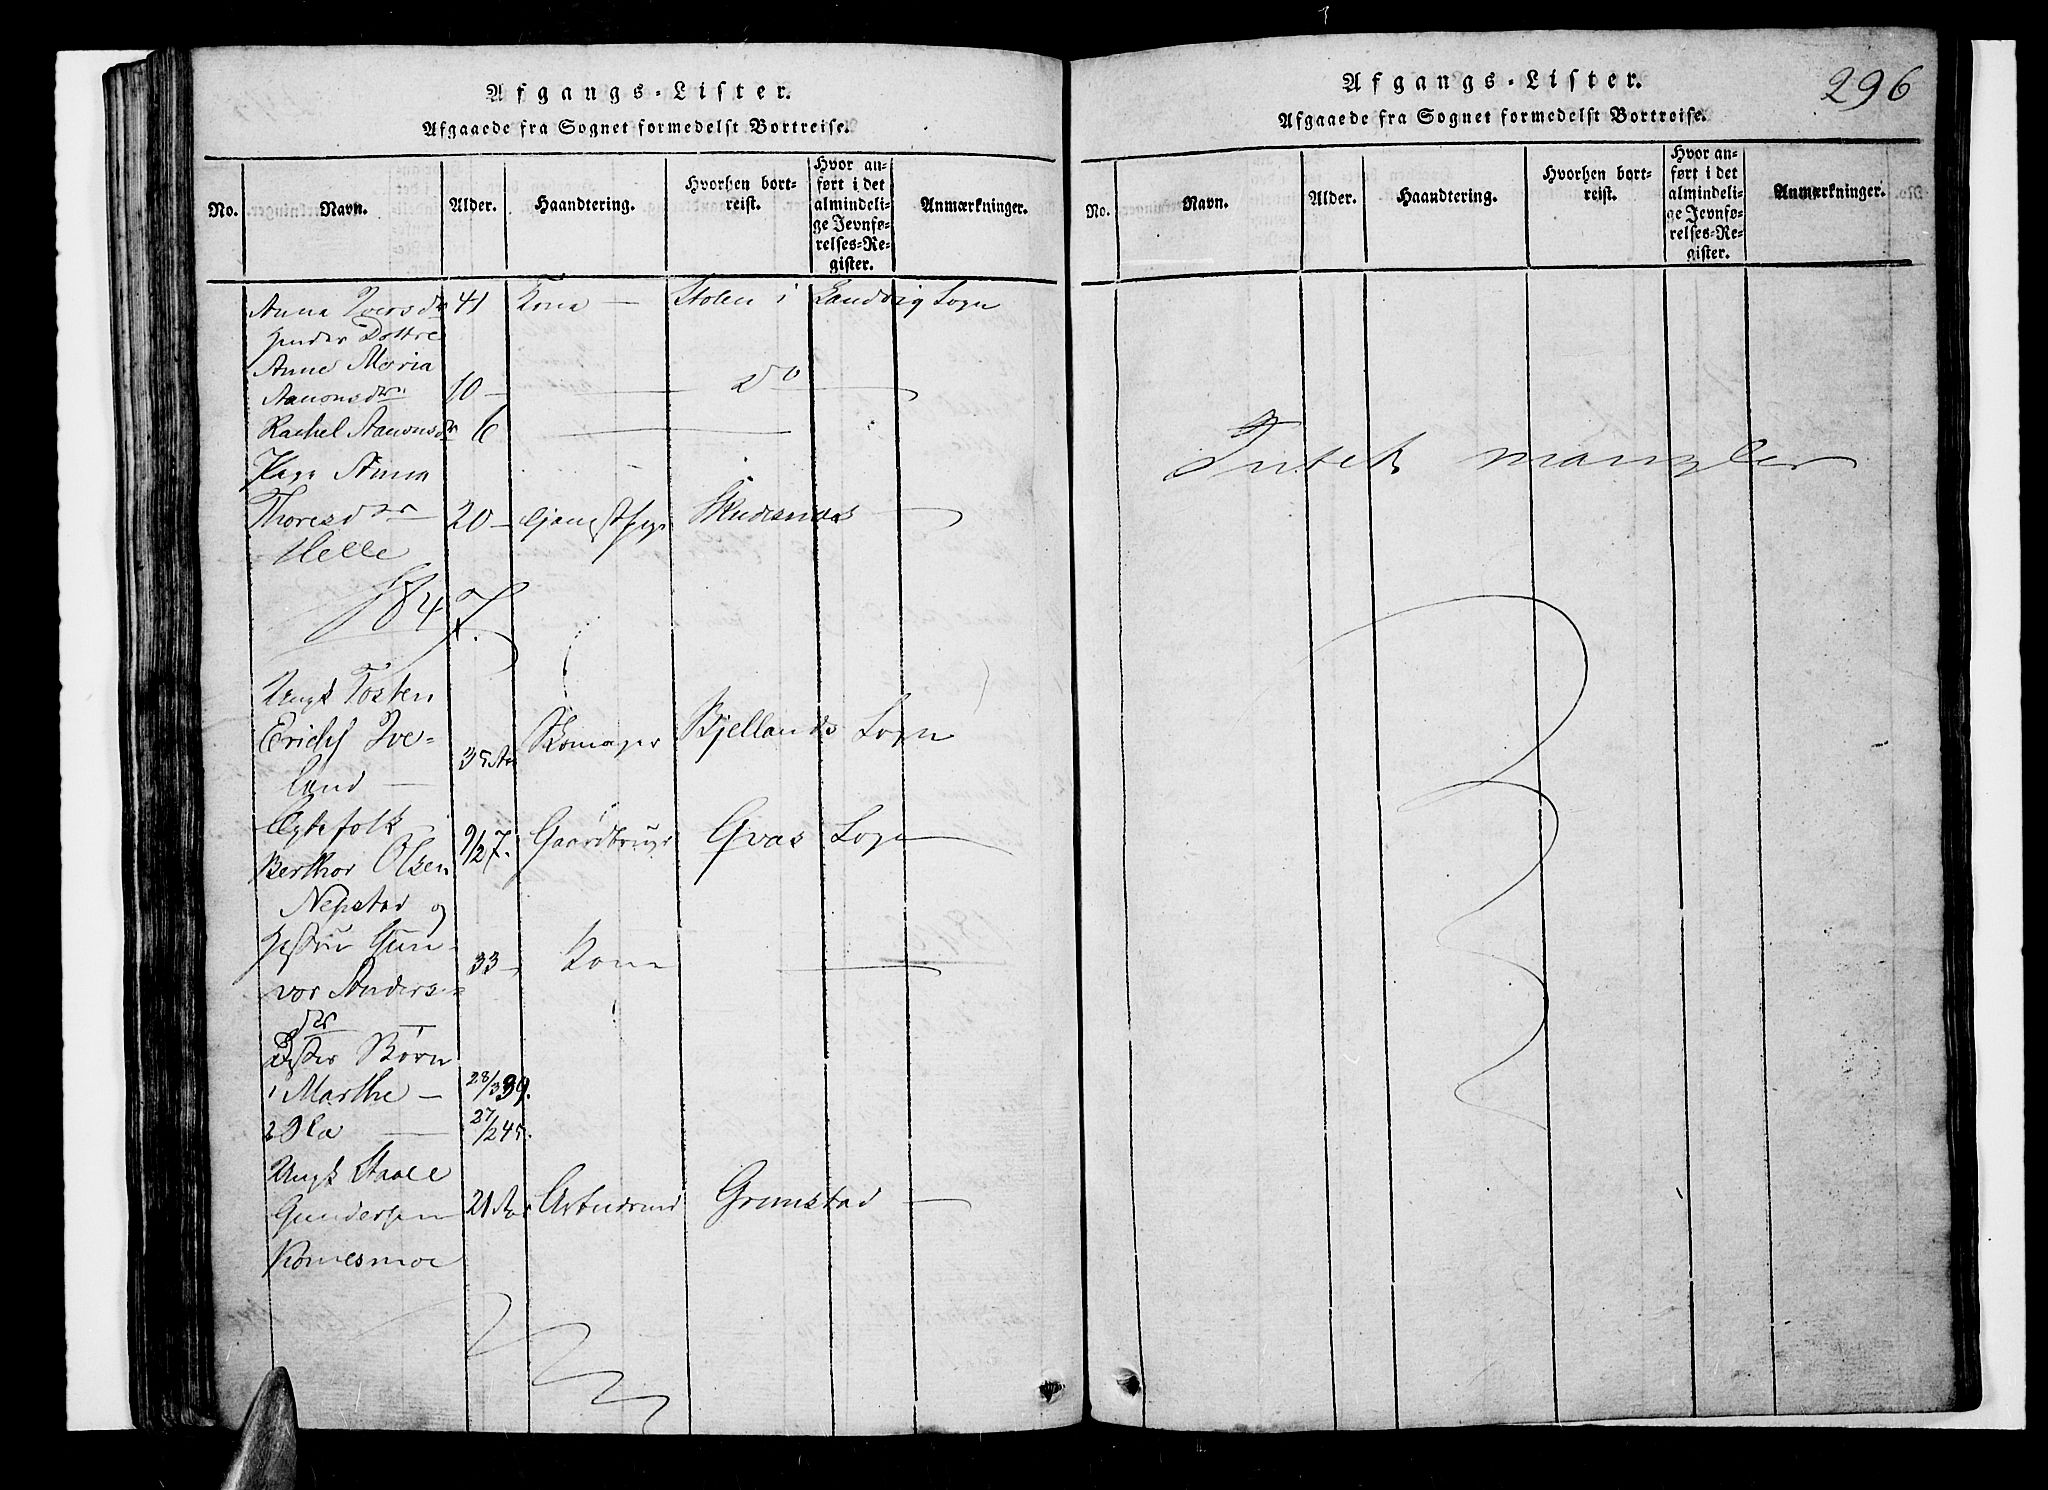 Afgangs-Lister.
Afgaaede fra Sognet formedelst Bortreise.
No. Navn. Alder. Haandtering. Hvorhen bortreist. Hvor anført i det almindelige Jevnførelses-Register. Anmærkninger.
Anna Iversdtr 41 Kona — Stolen i Landvig Sogn
hendes Døttre
Anne Maria
Aanonsdtr 10 — do —
Rachel Aanonsdtr 6 —
Pige Anna
Thoresdtr 20 — Skudesnæs —
Helle
1847.
Ungk Tosten
Erichs Ive-
land — 35 Aar Skomager Bjellands Sogn
Ægtefolk
Berthor Olsen 9/27. Gaardbruger Qvas Sogn
Nepstad og
Hustru Gun-
vor Anders- 33 — Kone —
dtr —
Disses Børn
1 Marthe — 28/3 39.
2 Ola — 27/2 45.
Ungk Staale
Gundersen 21 Aar Grimstad —
Homesmoe
Afgangs-Lister.
296
Afgaaede fra Sognet formedelst Bortreise.
No. Navn. Alder. Haandtering. Hvorhen bortreist. Hvor anført i det almindelige Jevnførelses-Register. Anmærkninger.
Intet mangler